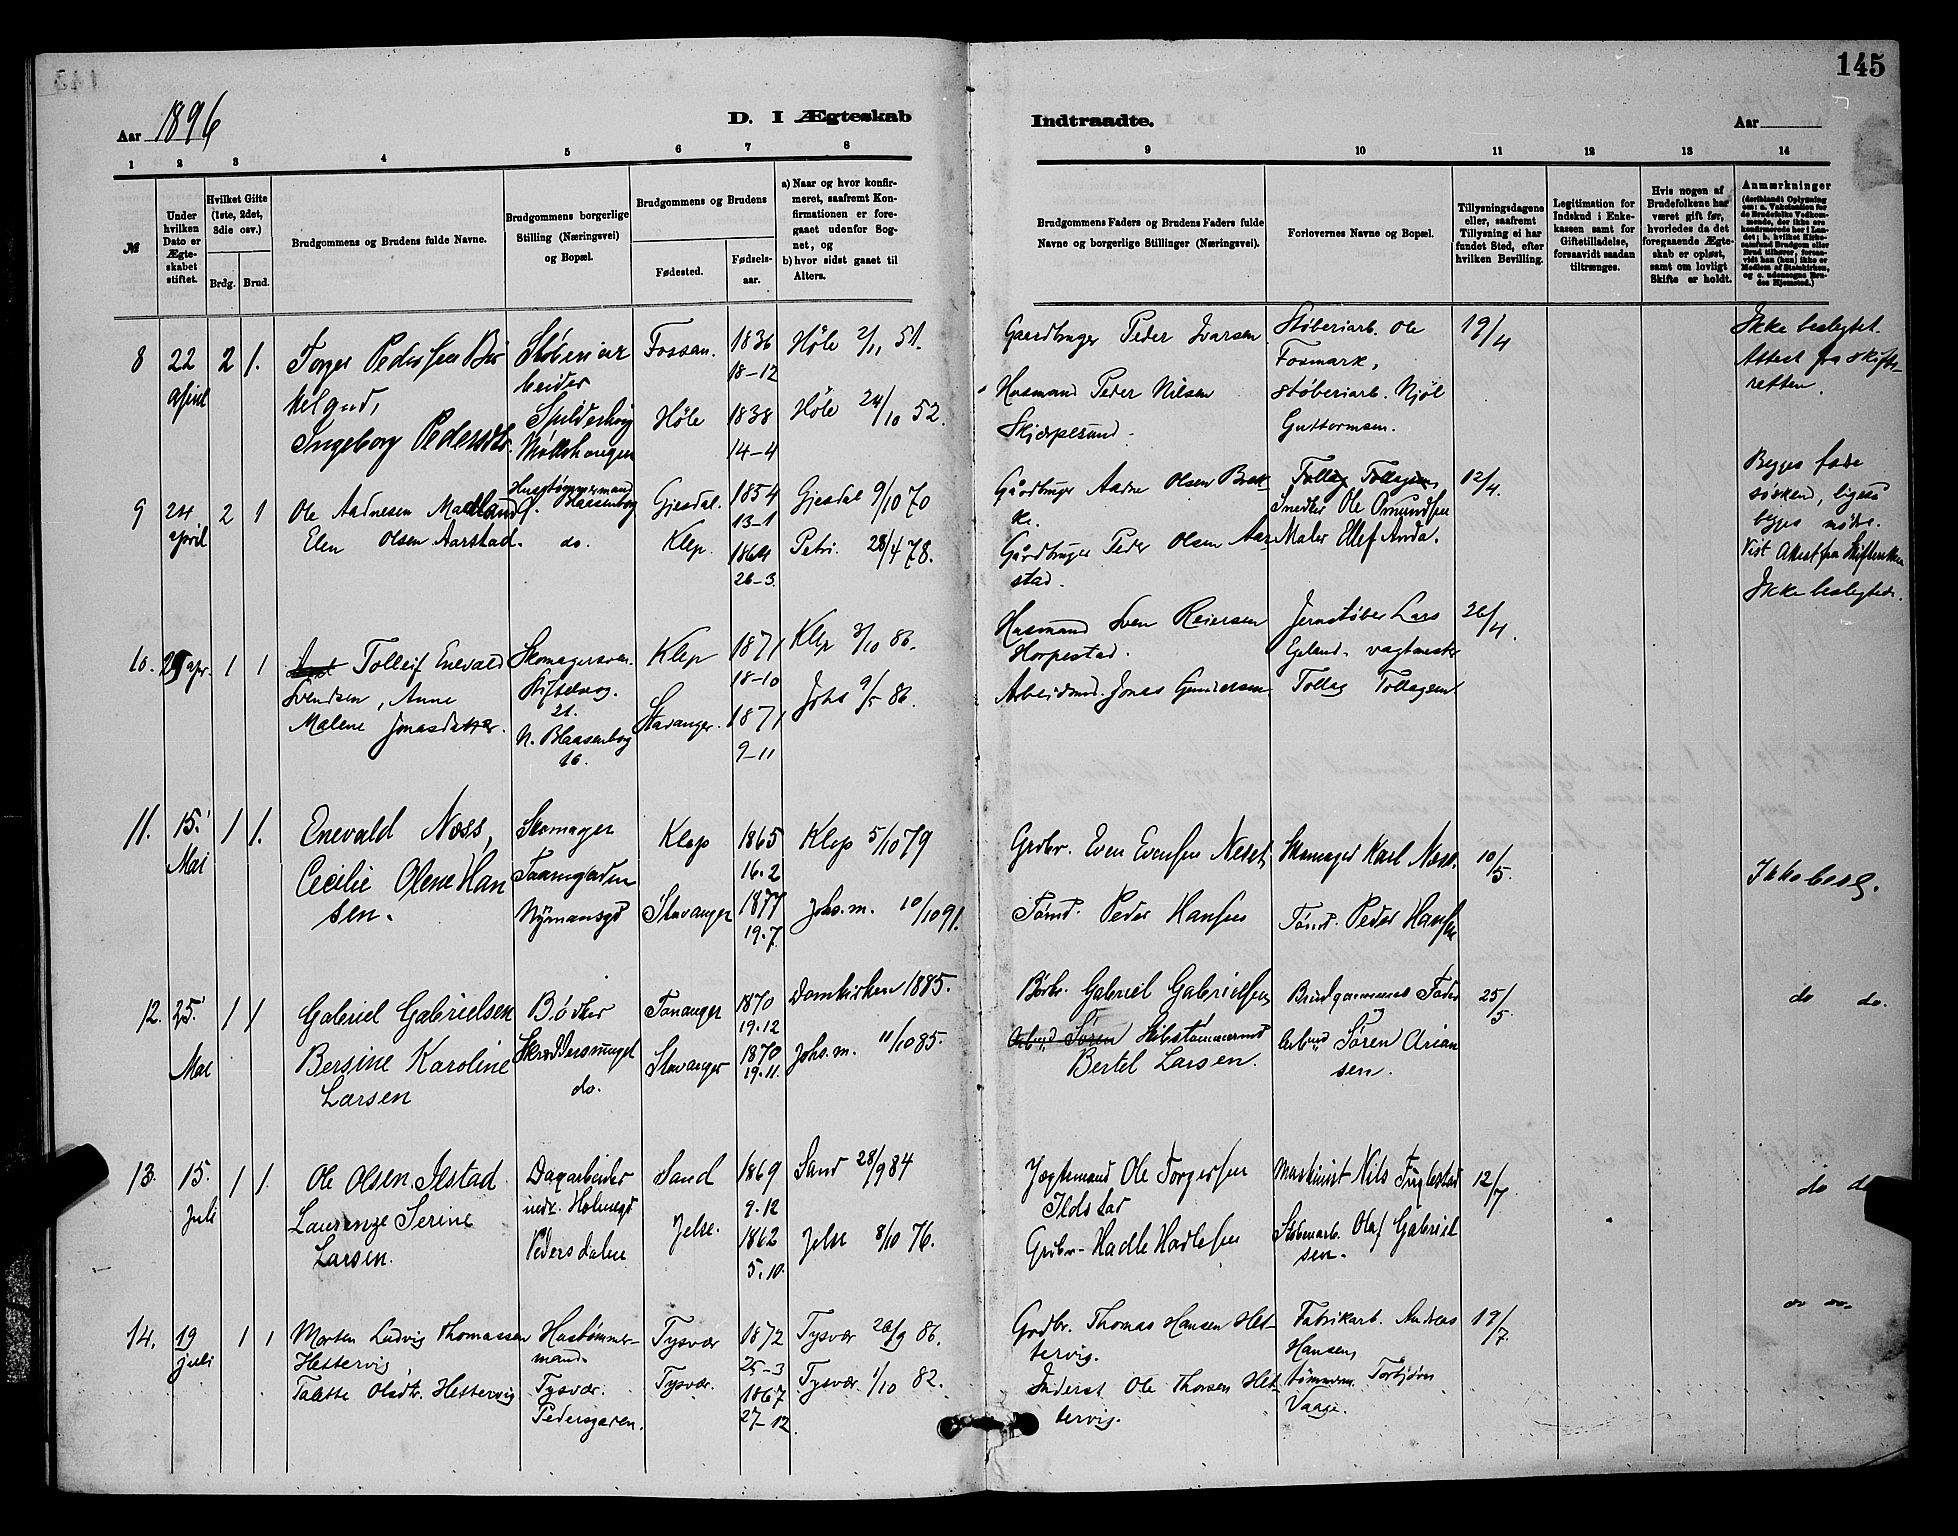 145
Aar 1896
D. I Ægteskab
Indtraadte.
Aar
1 2 3 4 5 6 7 8 9 10 11 12 13 14
№
Under hvilken Dato er Ægteskabet stiftet.
Hvilket Gifte (1ste, 2det, 3die osv.)
Brdg. Brud.
Brudgommens og Brudens fulde Navne.
Brudgommens borgerlige Stilling (Næringsvei) og Bopæl.
Brudgommens og Brudens
Fødested.
Fødselsaar.
a) Naar og hvor konfirmeret, saafremt Konfirmationen er foregaaet udenfor Sognet, og
b) hvor sidst gaaet til Alters.
Brudgommens Faders og Brudens Faders fulde Navne og borgerlige Stillinger (Næringsvei).
Forlovernes Navne og Bopæl.
Tillysningsdagene eller, saafremt Tillysning ei har fundet Sted, efter hvilken Bevilling.
Legitimation for Indskud i Enkekassen samt for Giftetilladelse, forsaavidt saadan tiltrænges.
Hvis nogen af Brudefolkene har været gift før, hvorledes da det foregaaende Ægteskab er opløst, samt om lovligt Skifte er holdt.
Anmærkninger (deriblandt Oplysning om: a. Vakcination for de Brudefolks Vedkommende, der ikke ere konfirmerede her i Landet; b. hvilket Kirkesamfund Brudgom eller Brud tilhører, forsaavidt han (hun) ikke er Medlem af Statskirken, og c. udensogns Brudes Hjemsted.)
8 22 april 2 1.
Torger Pedersen
Ingeborg Pedersdtr.
Støberiarbeider
Fossan. 1836 18-12 Høle 2/11 51.
Høle 1838 14-4 Høle 24/10 52.
Gaardbruger Peder Ivarsen
Husmand Peder Nilsen
Skjærpesund.
Støberiarb. Ole
Fosmark,
støberiarb. Njøl
Guttormsen.
19/4
Ikke beslegtet.
Attest fra skifteretten.
9 24 april 2 1
Ole Aadnesen Madland
Elen Olsen Aarstad.
Hustømmermand
Blaasenborg
do.
Gjesdal. 1854 13-1 Gjesdal 9/10 70
Klep. 1864 26-3 Petri. 28/4 78.
Gårdbruger Aadne Olsen Brekke.
Gårdbruger Peder Olsen Aarstad.
Tollag Tollagsen,
Snedker Ole Omundsen
Maler Ellef Anda.
12/4.
Begges fædre
søsken, ligeså
begges mødre.
Vist Attest fra Skifteretten
10. 25 apr. 1 1
Tolleif Enevald
Svendsen, Anne
Malene Jonasdatter.
Skomagersven.
21.
N. Blaasenborg
16.
Klep 1871 18-10 Klep 3/10 86.
Stavanger. 1871 9-11 Johs 9/5 86.
Husmand Sven Reiersen
Horpestad.
Arbeidsmd. Jonas Gundersen
Jernstøber Lars
Egeland. vagtmester
Tollag Tollagsen
26/4.
Ikke beslegtede.
11. 15. Mai 1 1.
Enevald Næss,
Cecilie Olene Hansen.
Skomager
Nymansgd
Klep 1865 16.2 Klep 5/10 79
Stavanger 1877 19.7 Johs.m. 10/10 91.
Grdbr. Even Evensen Neset
Tømd. Peder Hansen
Skomager Karl Næss.
Tømd. Peder Hansen
10/5.
Ikke besl.
12. 25. Mai 1 1
Gabriel Gabrielsen
Bersine Karoline
Larsen
Bødker
do.
Tananger 1870 19.12 Domkirken 1885.
Stavanger 1870 19.11. Johs.m. 11/10 85.
Bødkr. Gabriel Gabrielsen
Arbmd Søren Skibstømmermd
Bertel Larsen.
Brudgommens Fader
Arbmd Søren Ariansen.
25/5.
do do.
13. 15. Juli 1 1.
Ole Olsen Ilstad
Laurenze Serine
Larsen.
Dagarbeider
Pedersdalene
Sand 1869 9.12 Sand 28/9 84
Jelse. 1862 5.10. Jelse 8/10 76.
Jægtemand Ole Torgersen
Ildstad
Grdbr. Hadle Hadlesen
Maskinist Nils Fuglestad
Støberiarb. Olaf Gabrielsen.
12/7
do do
14. 19 juli 1 1
Morten Ludvig Thomassen
Hettervig,
Talette Olsdtr. Hettervig
Hustømmermand.
Tysvær.
Pedersgaden.
Tysvær 1872 25-3 Tysvær 26/9 86.
Tysvær. 1867 27-12 Tysvær. 1/10 82.
Grdbr. Thomas Hansen Hettervig.
Inderst Ole Thorsen Hettervig.
Fabrikarb. Andreas
Hansen,
tømmerm. Torbjørn
Vaage.
19/7.
do do.